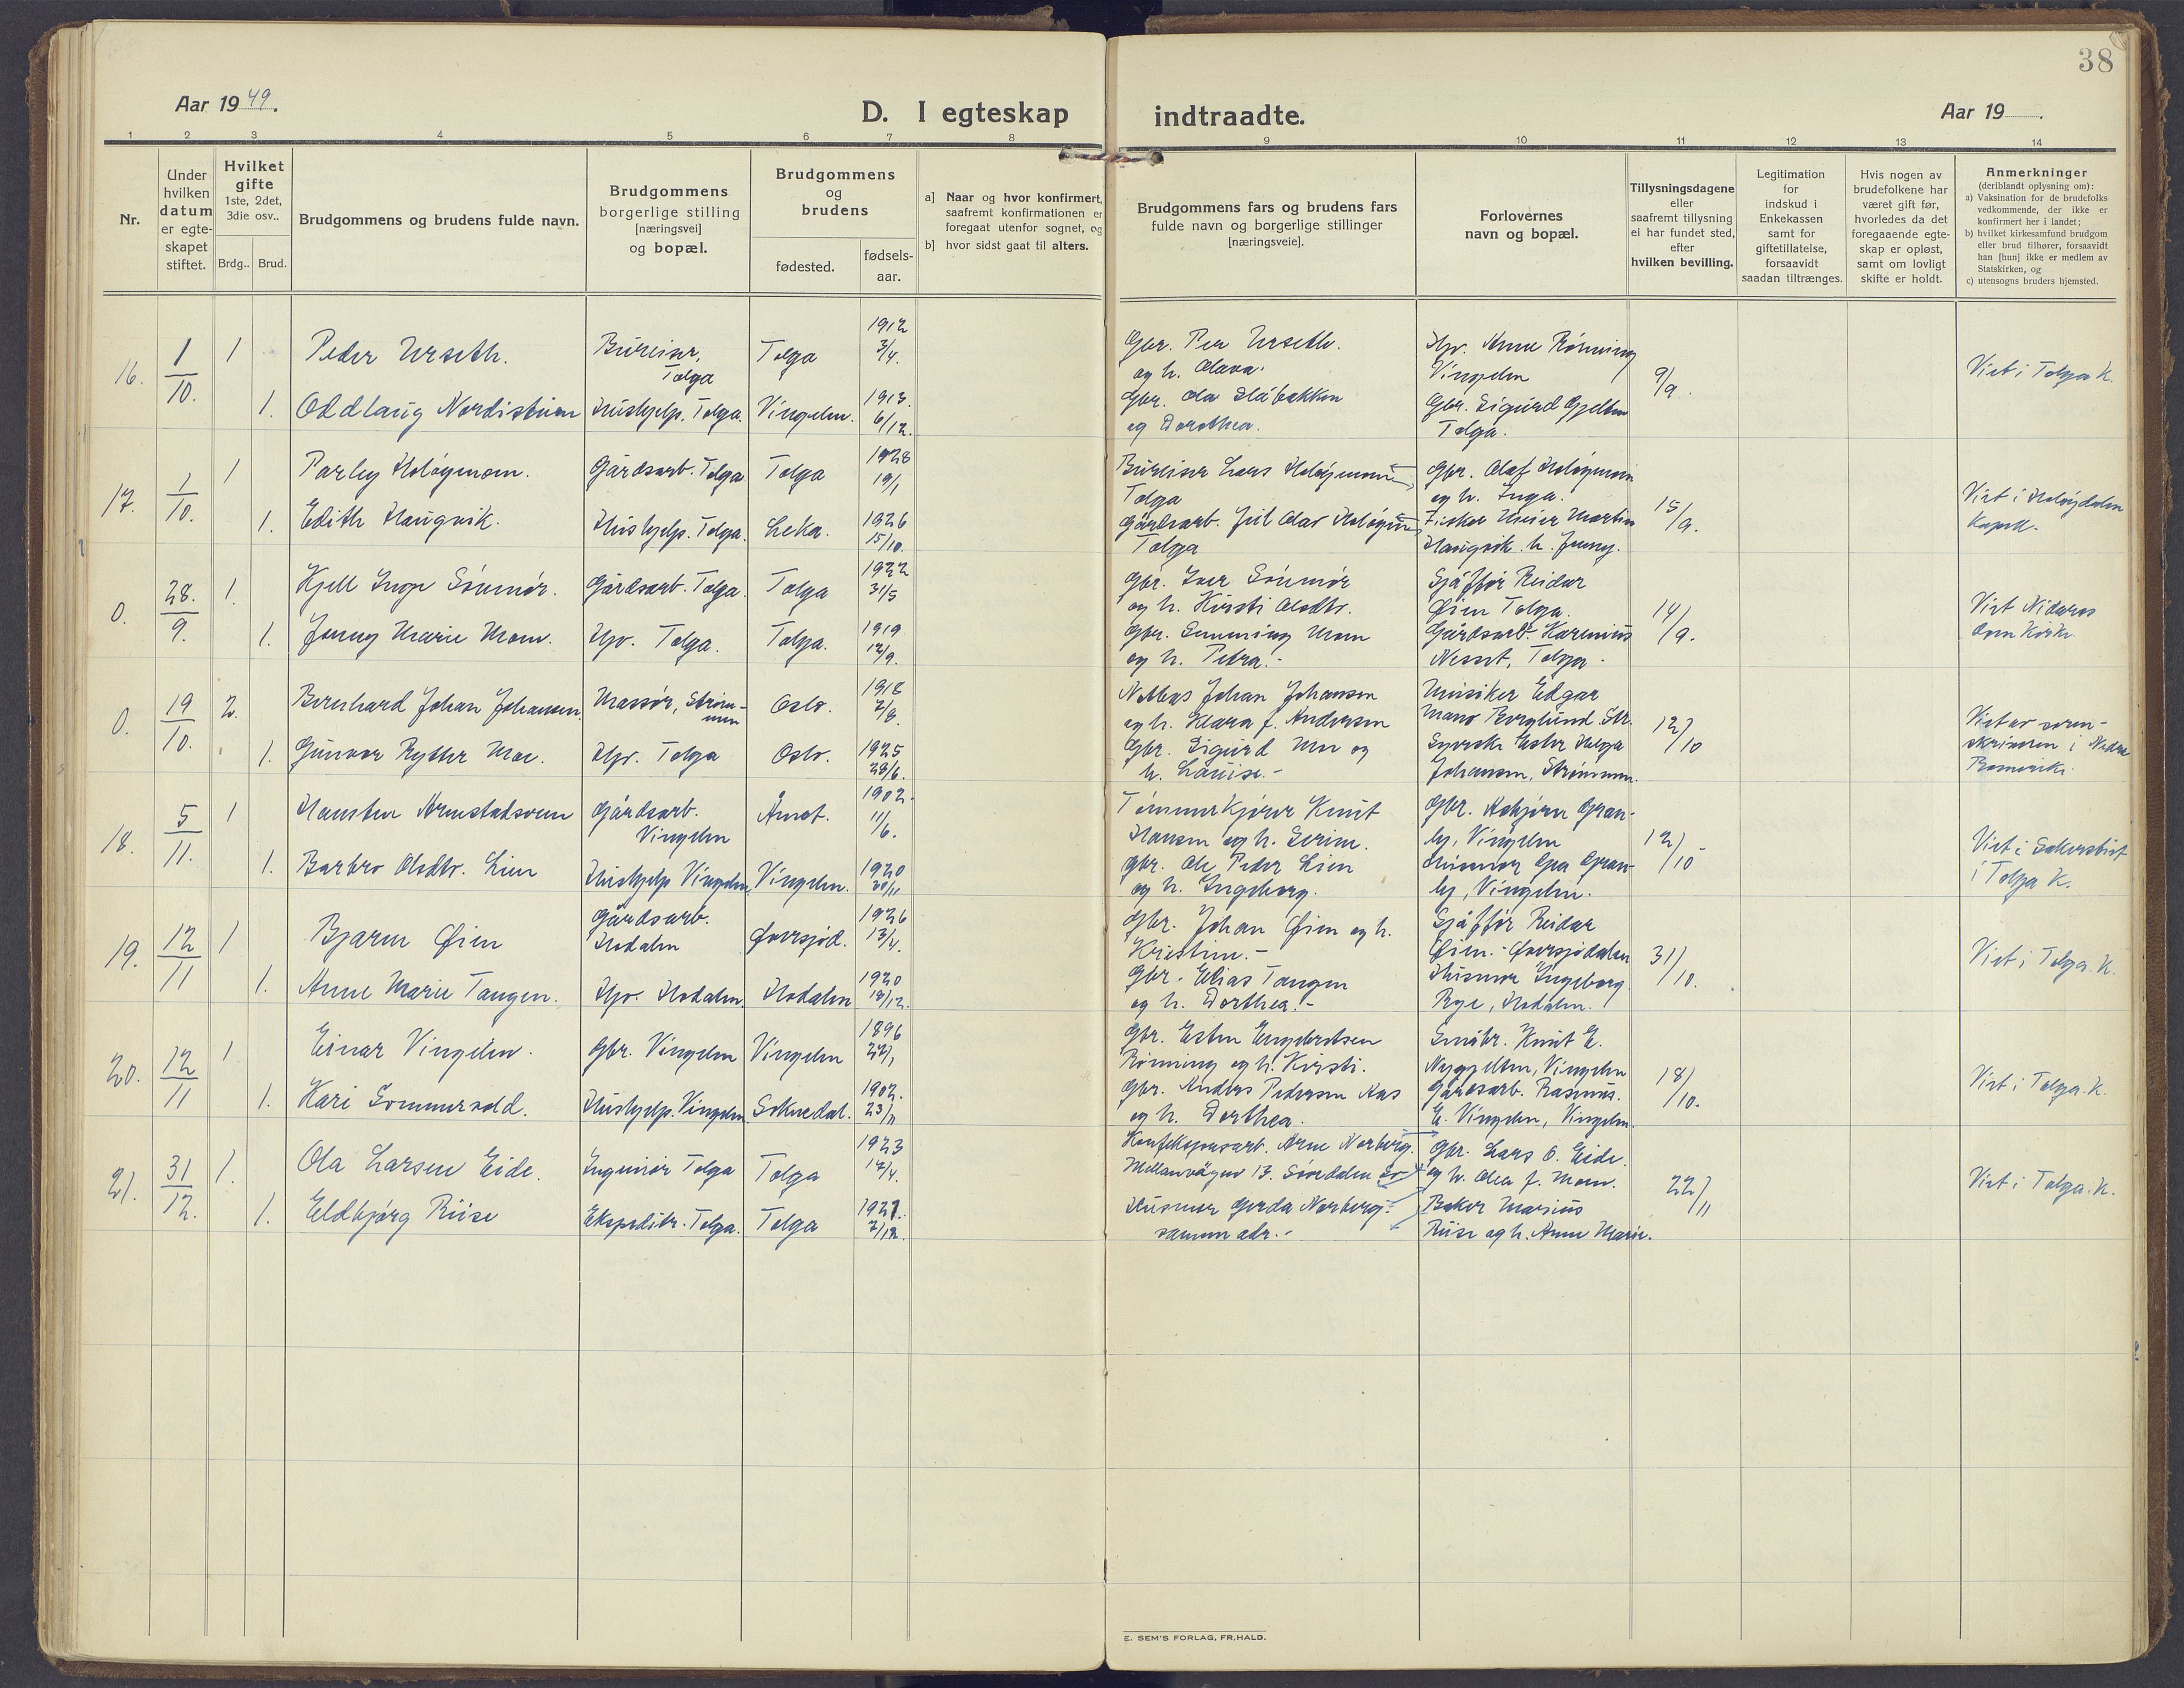 38
Aar 1949.
D. I egteskap indtraadte.
Aar 19 .
1 2 3 4 5 6 7 8 9 10 11 12 13 14
Nr.
Under hvilken datum er egteskapet stiftet.
Hvilket gifte 1ste, 2det, 3die osv..
Brdg.. Brud.
Brudgommens og brudens fulde navn.
Brudgommens borgerlige stilling [næringsvei] og bopæl.
Brudgommens og brudens
fødested.
fødsels-aar.
a] Naar og hvor konfirmert, saafremt konfirmationen er foregaat utenfor sognet, og
b] hvor sidst gaat til alters.
Brudgommens fars og brudens fars fulde navn og borgerlige stillinger [næringsveie].
Forlovernes navn og bopæl.
Tillysningsdagene eller saafremt tillysning ei har fundet sted, efter hvilken bevilling.
Legitimation for indskud i Enkekassen samt for giftetillatelse, forsaavidt saadan tiltrænges.
Hvis nogen av brudefolkene har været gift før, hvorledes da det foregaaende egteskap er opløst, samt om lovligt skifte er holdt.
Anmerkninger (deriblandt oplysning om):
a) Vaksination for de brudefolks vedkommende, der ikke er konfirmert her i landet;
b) hvilket kirkesamfund brudgom eller brud tilhører, forsaavidt han [hun] ikke er medlem av Statskirken, og
c) utensogns bruders hjemsted.
16. 1/10. 1 Peder Urseth. Bureiser, Tolga Tolga 1912 3/4.
Gbr. Per Urseth. og h. Olava.
Hpv. Anne Rønning Vingelen
9/9.
Viet i Tolga K.
1. Oddlaug Nordistuen Hushjelp. Tolga. Vingelen. 1913. 6/12.
Gbr. Ola Slåbakken og Dorothea.
Gbr. Sigurd Gjelten Tolga.
17. 1/10. 1 Parley Holøymoen. Gårdsarb. Tolga Tolga 1928 19/1
Bureiser Lars Holøymoen Tolga
Gbr. Olaf Holøymoen og h. Inga.
15/9.
Viet i Holøydalen Kapell.
1. Edith Haugvik. Hushjelp. Tolga. Leka. 1926 15/10.
Gårdsarb. Jul Olav Holøym Tolga
Fisker Meier Martin Haugvik h. Jenny.
0. 28./9. 1. Kjell Inge Sømør. Gårdsarb. Tolga. Tolga 1922 31/5
Gbr. Iver Sømør og h. Kirsti Olsdtr.
Sjåffør Reidar Øien Tolga.
14/9.
Viet Nidaros Domkirke.
1. Jenny Marie Moen. Hpv. Tolga. Tolga. 1919 12/9.
Gbr. Henning Moen og h. Petra.-
Gårdsarb. Karenius Nesset, Tolga.
0. 19/10. 2. Bernhard Johan Johansen. Massør, Strømmen Oslo. 1918 2/8.
Johan Johansen og h. Klara f. Andersen
Musiker Edgar Berglund Str.
12/10
Viet av sorenskriveren i Nedre Romerike.
1. Gunvor Rytter Moe. Hpv. Tolga Oslo. 1925 28/6.
Gbr. Sigurd Moe og h. Louise.-
Syerske Ester Helga Johansen, Strømmen.
18. 5/11. 1 Hansten Armstadsveen Gårdsarb. Vingelen Åmot. 1902. 11/6.
Tømmerkjører Knut Hansen og h. Serine.
Gbr. Asbjørn Granly, Vingelen
12/10
Viet i Sakerstiet i Tolga K.
1. Barbro Olsdtr. Lien Hushjelp Vingelen. Vingelen. 1920 20/11
Gbr. Ole Peder Lien og h. Ingeborg.
Husmor Granly, Vingelen.
19. 12/11 1 Bjarne Øien Gårdsarb. Hodalen Øversjød. 1926 13/4.
Gbr. Johan Øien og h. Kristine.-
Sjåffør Reidar Øien.- Øversjødalen
31/10.
Viet i Tolga K.
1. Anne Marie Tangen. Hpv. Hodalen. Hodalen 1920 18/12.
Gbr. Elias Tangen og h. Dorthea.-
Husmor Ingeborg Rye, Hodalen.
20. 12/11 1 Einar Vingelen. Gbr. Vingelen Vingelen 1896 22/1
Gbr. Esten Engebretsen Rønning og h. Kirsti.
Småbr. Knut E. Nygjelten, Vingelen
18/10.
Viet i Tolga K.
1. Kari Sommervold. Hushjelp. Vingelen. Soknedal. 1902. 23/11
Gbr. Anders Pedersen Aas og h. Dorthea.
Gårdsarb. Rasmus E. Vingelen, Vingelen.
21. 31/12. 1. Ola Larsen Eide. Ingeniør Tolga Tolga 1923 14/4.
Konfeksjonsarb. Arne Norberg. Mellanvägen 13. Sörödalen Sv.
Gbr. Lars O. Eide. og h. Olea f. Moen.
22/11
Viet i Tolga K.
1. Eldbjørg Riise Ekspeditr. Tolga. Tolga 1927. 2/12.
Husmor Gerda Norberg.- samme adr.-
Baker Marius Riise og h. Anne Marie.
E. SEM'S FORLAG, FR.HALD.